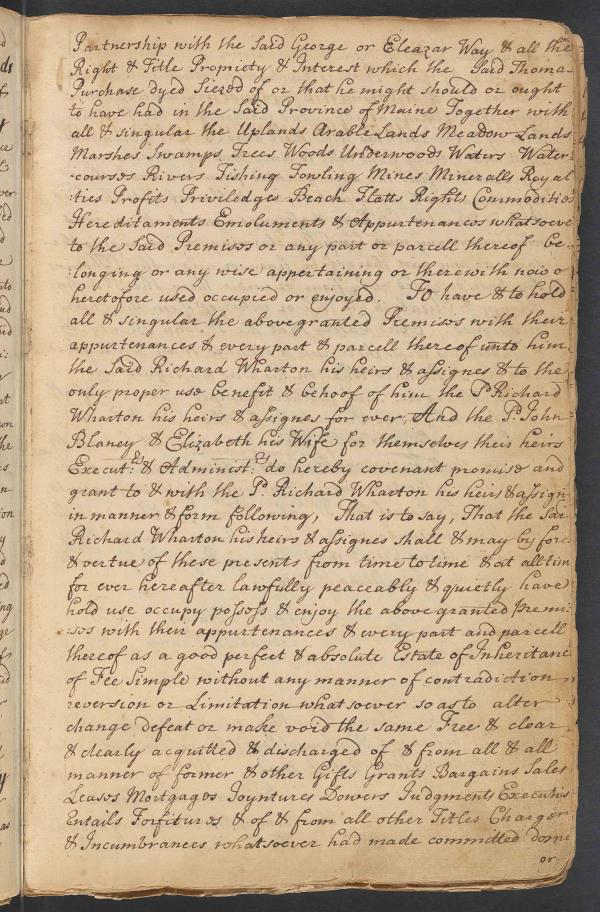 Partnership with the Said George or Eleazar Way & all the
Right & Title Propriety & Interest which the Said Thoma
Purchase dyed Siezed of or that he might should or ought
to have had in the Said Province of Maine Together with
all & singular the Uplands Arable Lands Meadow Lands
Marshes Swamps Trees Woods Underwoods Waters Water
-courses Rivers Fishing Fowling Mines Mineralls Royal
:ties Profits Priviledges Beach Flatts Rights Commodities
Hereditaments Emoluments & Appurtenances whatsoeve
to the Said Premises or any part or parcell thereof be
:longing or any wise appertaining or therewith now o
heretofore used occupied or enjoyed. To have & to hold
all & singular the above granted Premises with their
appurtenances & every part & parcell thereof unto him
the Said Richard Wharton his heirs & assignes & to the
only proper use benefit & behoof of him the Sd Richard
Wharton his heirs & assignes for ever, And the Sd. John
Blaney & Elizabeth his Wife for themselves their heirs
Execut:rs & Administ:rs do hereby covenant promise and
grant to & with the Sd. Richard Wharton his heirs & assign
in manner & form following, That is to say, That the Sai
Richard Wharton his heirs & assignes shall & may by forc
& vertue of these presents from time to time & at all tim
for ever hereafter lawfully peaceably & quietly have
hold use occupy possess & enjoy the above granted Premi:
:ses with their appurtenances & every part and parcell
thereof as a good perfect & absolute Estate of Inheritanc
of Fee Simple without any manner of contradiction
reversion or Limitation whatsoever so as to alter
change defeat or make void the same Free & clear
& clearly acquitted & discharged of & from all & all
manner of former & other Gifts Grants Bargains Sales
Leases Mortgages Joyntures Dowers Judgments Executio
Entails Forfitures & of & from all other Titles Charges
& Incumbrances whatsoever had made committed done
or